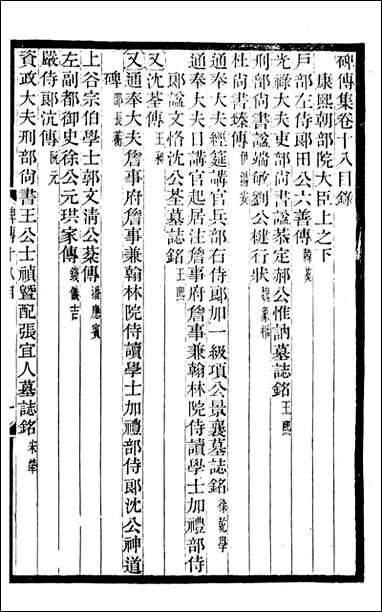 碑傳集卷十八目錄
康熙朝部院大臣上之下
戶部左侍郎田公六善傳 韓菼
光祿大夫吏部尚書諡恭定郝公惟訥墓誌銘 王熙
刑部尚書諡端敏劉公楗行狀 魏象樞
杜尚書臻傳 伊湯安
通奉大夫經筵講官兵部右侍郎加一級項公景襄墓誌銘 徐乾學
通奉大夫日講官起居注詹事府詹事兼翰林院侍讀學士加禮部侍
郎諡文恪沈公荃墓誌銘 王熙
又沈荃傳 王昶
又通奉大夫詹事府詹事兼翰林院侍讀學士加禮部侍郎沈公神道
碑 邵長蘅
上谷宗伯學士郭文清公棻傳 潘應賓
左副都御史徐公元珙家傳 錢儀吉
嚴侍郎沆傳 阮元
資政大夫刑部尚書王公士禛暨配張宜人墓誌銘 宋犖